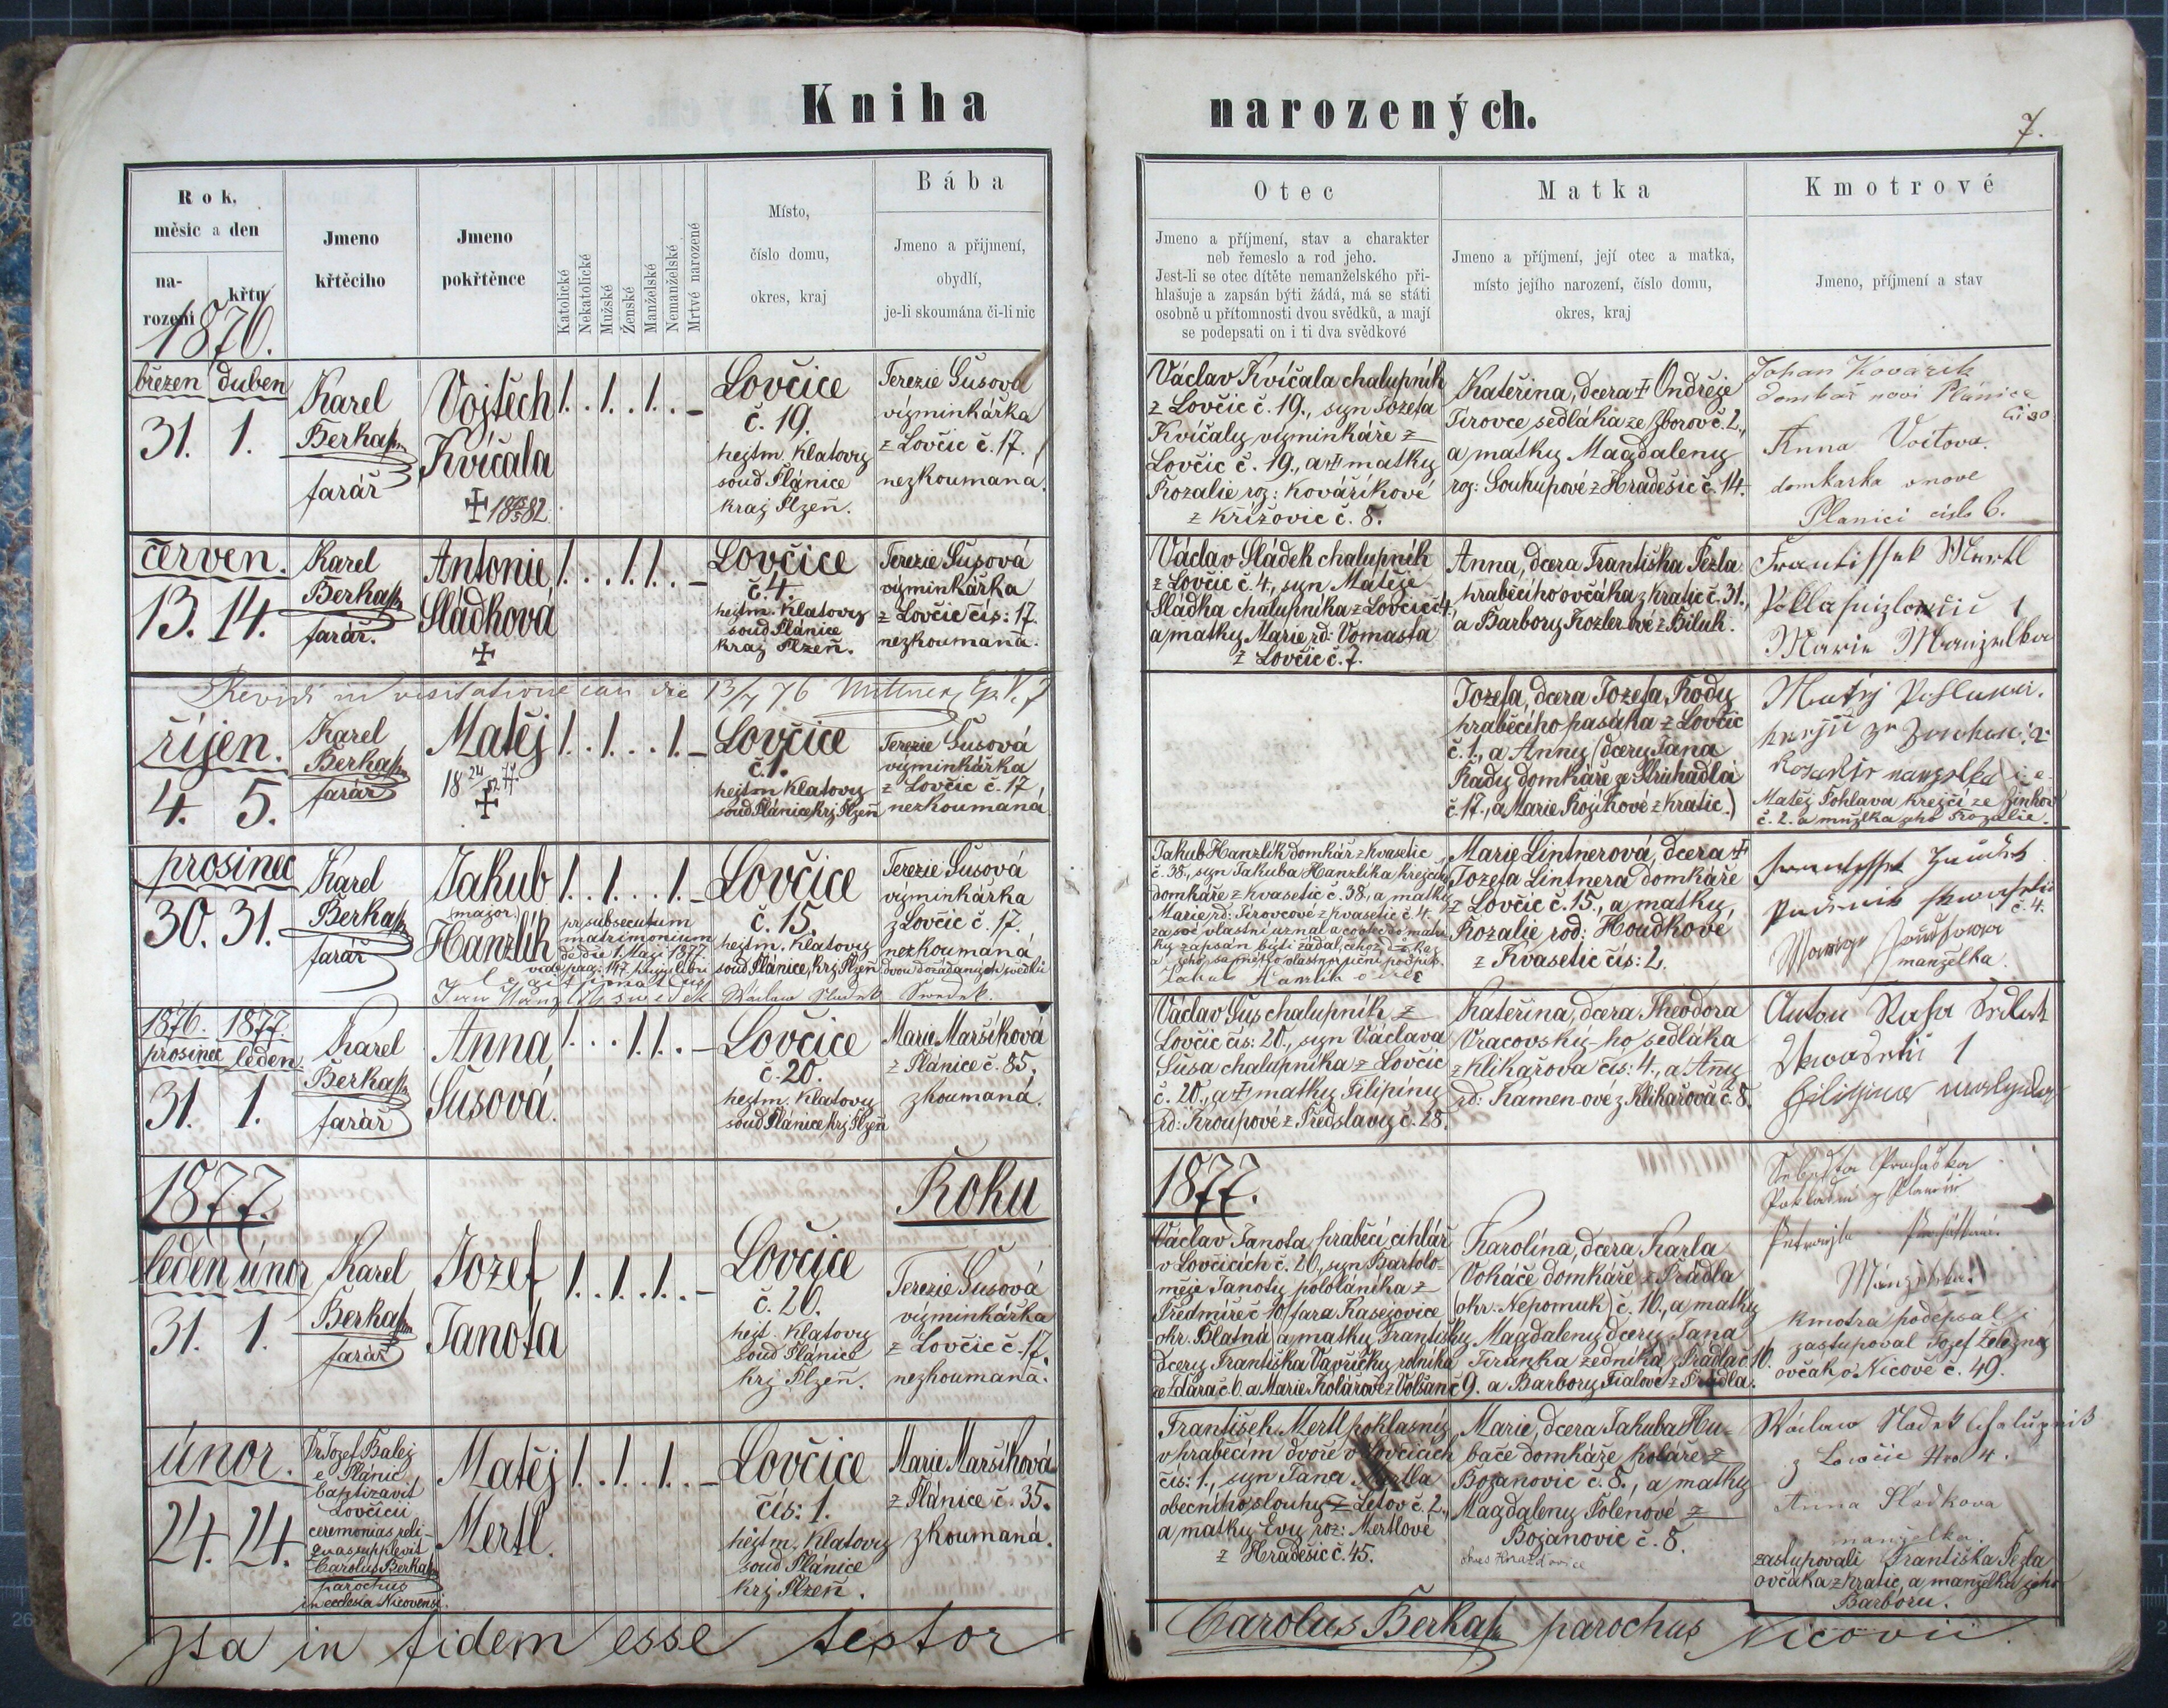 Kniha narozených.
7.
Rok,
měsíc a den
na-
rození
křtu
Jmeno
křtěcího
Jmeno
pokřtěnce
Katolické
Nekatolické
Mužské
Ženské
Manželské
Nemanželské
Mrtvé narozené
Místo,
číslo domu,
okres, kraj
Bába
Jmeno a přijmení,
obydlí,
je-li skoumána či-li nic
Otec
Jmeno a příjmení, stav a charakter
neb řemeslo a rod jeho.
Jest-li se otec dítěte nemanželského při-
hlašuje a zapsán býti žádá, má se státi
osobně u přítomnosti dvou svědků, a mají
se podepsati on i ti dva svědkové
Matka
Jmeno a příjmení, její otec a matka,
místo jejího narození, číslo domu,
okres, kraj
Kmotrové
Jmeno, příjmení a stav
1876.
březen duben
31. 1.
Karel
Berka
farář
Vojtěch
Kvíčala
1. . 1. . 1. . -
Lovčice
č. 19.
hejtm. Klatovy
soud Plánice
kraj Plzeň.
Terezie Šusová
výminkářka
z Lovčic č. 17.
nezkoumaná.
Václav Kvíčala chalupník
z Lovčic č. 19., syn Jozefa
Kvíčaly výminkáře z
Lovčic č. 19., a † matky
Rozalie roz: Kovaříkové
z Křížovic č. 8.
Kateřina, dcera † Ondřeje
Pirovce sedláka ze Zborov č. 2.,
a matky Magdaleny
roz: Soukupové z Hradešic č. 14.
Johan Kovárik
Anna Voitova
domkarka
Planici cislo 6.
červen.
13. 14.
Karel
Berka
farář.
Antonie
Sládková
1. . . 1. 1. . -
Lovčice
č. 4.
hejtm. Klatovy
soud Plánice
kraj Plzeň.
Terezie Šusová
výminkářka
z Lovčic čís: 17.
nezkoumaná.
Václav Sládek chalupník
z Lovčic č. 4., syn Matěje
Sládka chalupníka z Lovčic č. 4.,
a matky Marie rd: Vomasta
z Lovčic č. 7.
Anna, dcera Františka Pezla
hraběcího ovčáka z Kratic č. 31.,
a Barbory Kozler-ové z Biluk.
Frantissek Mertl
Marie Manzelka
13/7 76
říjen.
4. 5.
Karel
Berka
farář
Matěj
1. . 1. . . 1. -
Lovčice
č. 1.
hejtm Klatovy
soud Plánice, krj Plzeň
Terezie Šusová
výminkářka
z Lovčic č. 17
nezkoumaná.
Jozefa, dcera Jozefa Rody
hraběcího pasáka z Lovčic
č. 1., a Anny (dcery Jana
Rady domkáře ze Struhadla
č. 17., a Marie Kojíkové z Kratic.)
Matěj Pohlava krejčí ze Žinkov
č. 2. a mnžlka jeho Rozalie.
prosinec
30. 31.
Karel
Berka
farář
Jakub
(major)
Hanzlík
pr subsecutum
matrimonium
de die 1. Maji 1877.
vide pag: 147. hujus libri
legitimatus
1. . 1. . . 1. -
Lovčice
č. 15.
hejtm. Klatovy
soud Plánice, krj Plzeň
Terezie Šusová
výminkářka
z Lovčic č. 17.
nezkoumaná
dvou dožádaných svědků
Jan Hanzlík swedek Wáclaw Sladek Swedek.
Jakub Hanzlík domkář z Kvasetic
č. 38., syn Jakuba Hanzlíka krejčího
domkáře z Kvasetic č. 38., a matky
Marie rd: Pirovcové z Kvasetic č. 4.
Jakub Hanzlik otec
Marie Lintnerová, dcera †
Jozefa Lintnera domkáře
z Lovčic č. 15., a matky
Rozalie rod: Houdkové
z Kvasetic čís: 2.
č. 4.
manželka.
1876. 1877.
prosinec leden.
31. 1.
Karel
Berka
farář
Anna
Šusová.
1. . . 1. 1. . -
Lovčice
č. 20.
hejtm. Klatovy
soud Plánice, krj Plzeň
Marie Maršíková
z Plánice č. 85.,
zkoumaná.
Václav Šus chalupník z
Lovčic čís: 20., syn Václava
Šusa chalupníka z Lovčic
č. 20., a † matky Filipíny
rd: Kroupové z Předslavy č. 28.
Kateřina, dcera Theodora
Vracovský-ho sedláka
z Klikařova čís: 4., a Any
rd: Kamen-ové z Klikařova č. 8.
Anton Rasa
1877. Roku 1877.
leden únor
31. 1.
Karel
Berka
farář
Jozef
Janota
1. . 1. . 1. . -
Lovčice
č. 20.
hejt. Klatovy
soud Plánice
krj Plzeň.
Terezie Šusová
výminkářka
z Lovčic č. 17.
nezkoumaná.
Václav Janota hraběcí cihlář
v Lovčicích č. 20., syn Bartolo-
měje Janoty pololáníka z
Předmíře č. 10, fara Kasejovice,
okr. Blatná, a matky Františky
dcery Františka Vavřičky rolníka
ze Zdára č. 6. a Marie Kolářové z Volšan č. 9.
Karolína, dcera Karla
Voháče domkáře z Prádla
(okr. Nepomuk) č. 16., a matky
Magdaleny dcery Jana
Franka zedníka z Prádla č. 16.
a Barbory Fialové z Prádla.
Manželka
Kmotra podepsal i
zastupoval Jozef Železný
ovčák v Nicově č. 49.
únor.
24. 24.
P. Jozef Balej
e Plánic
baptizavit
Lovčicii
ceremonias reli-
quas supplevit
Carolus Berka
parochus
in ecclesia Nicovensi.
Matěj
Mertl.
1. . 1. . 1. . -
Lovčice
čís: 1.
hejtm. Klatovy
soud Plánice
krj Plzeň.
Marie Maršíková
z Plánice č. 35.
zkoumaná.
František Mertl poklasný
v hraběcím dvoře v Lovčicích
čís: 1., syn Jana Mertla
obecního slouhy z Letov č. 2.,
a matky Evy roz: Mertlové
z Hradešic č. 45.
Marie, dcera Jakuba Hu-
bače domkáře koláře z
Bojanovic č. 8., a matky
Magdaleny Polenové z
Bojanovic č. 8.
Wáclaw Sladek Chalupnik
z Lowčic Nro 4.
Anna Sládkova
manželka
zastupovali Františka Pezla
ovčáka z Kratic, a manželku jeho
Barboru.
Ita in fidem esse testor
Carolus Berka parochus Nicovii.